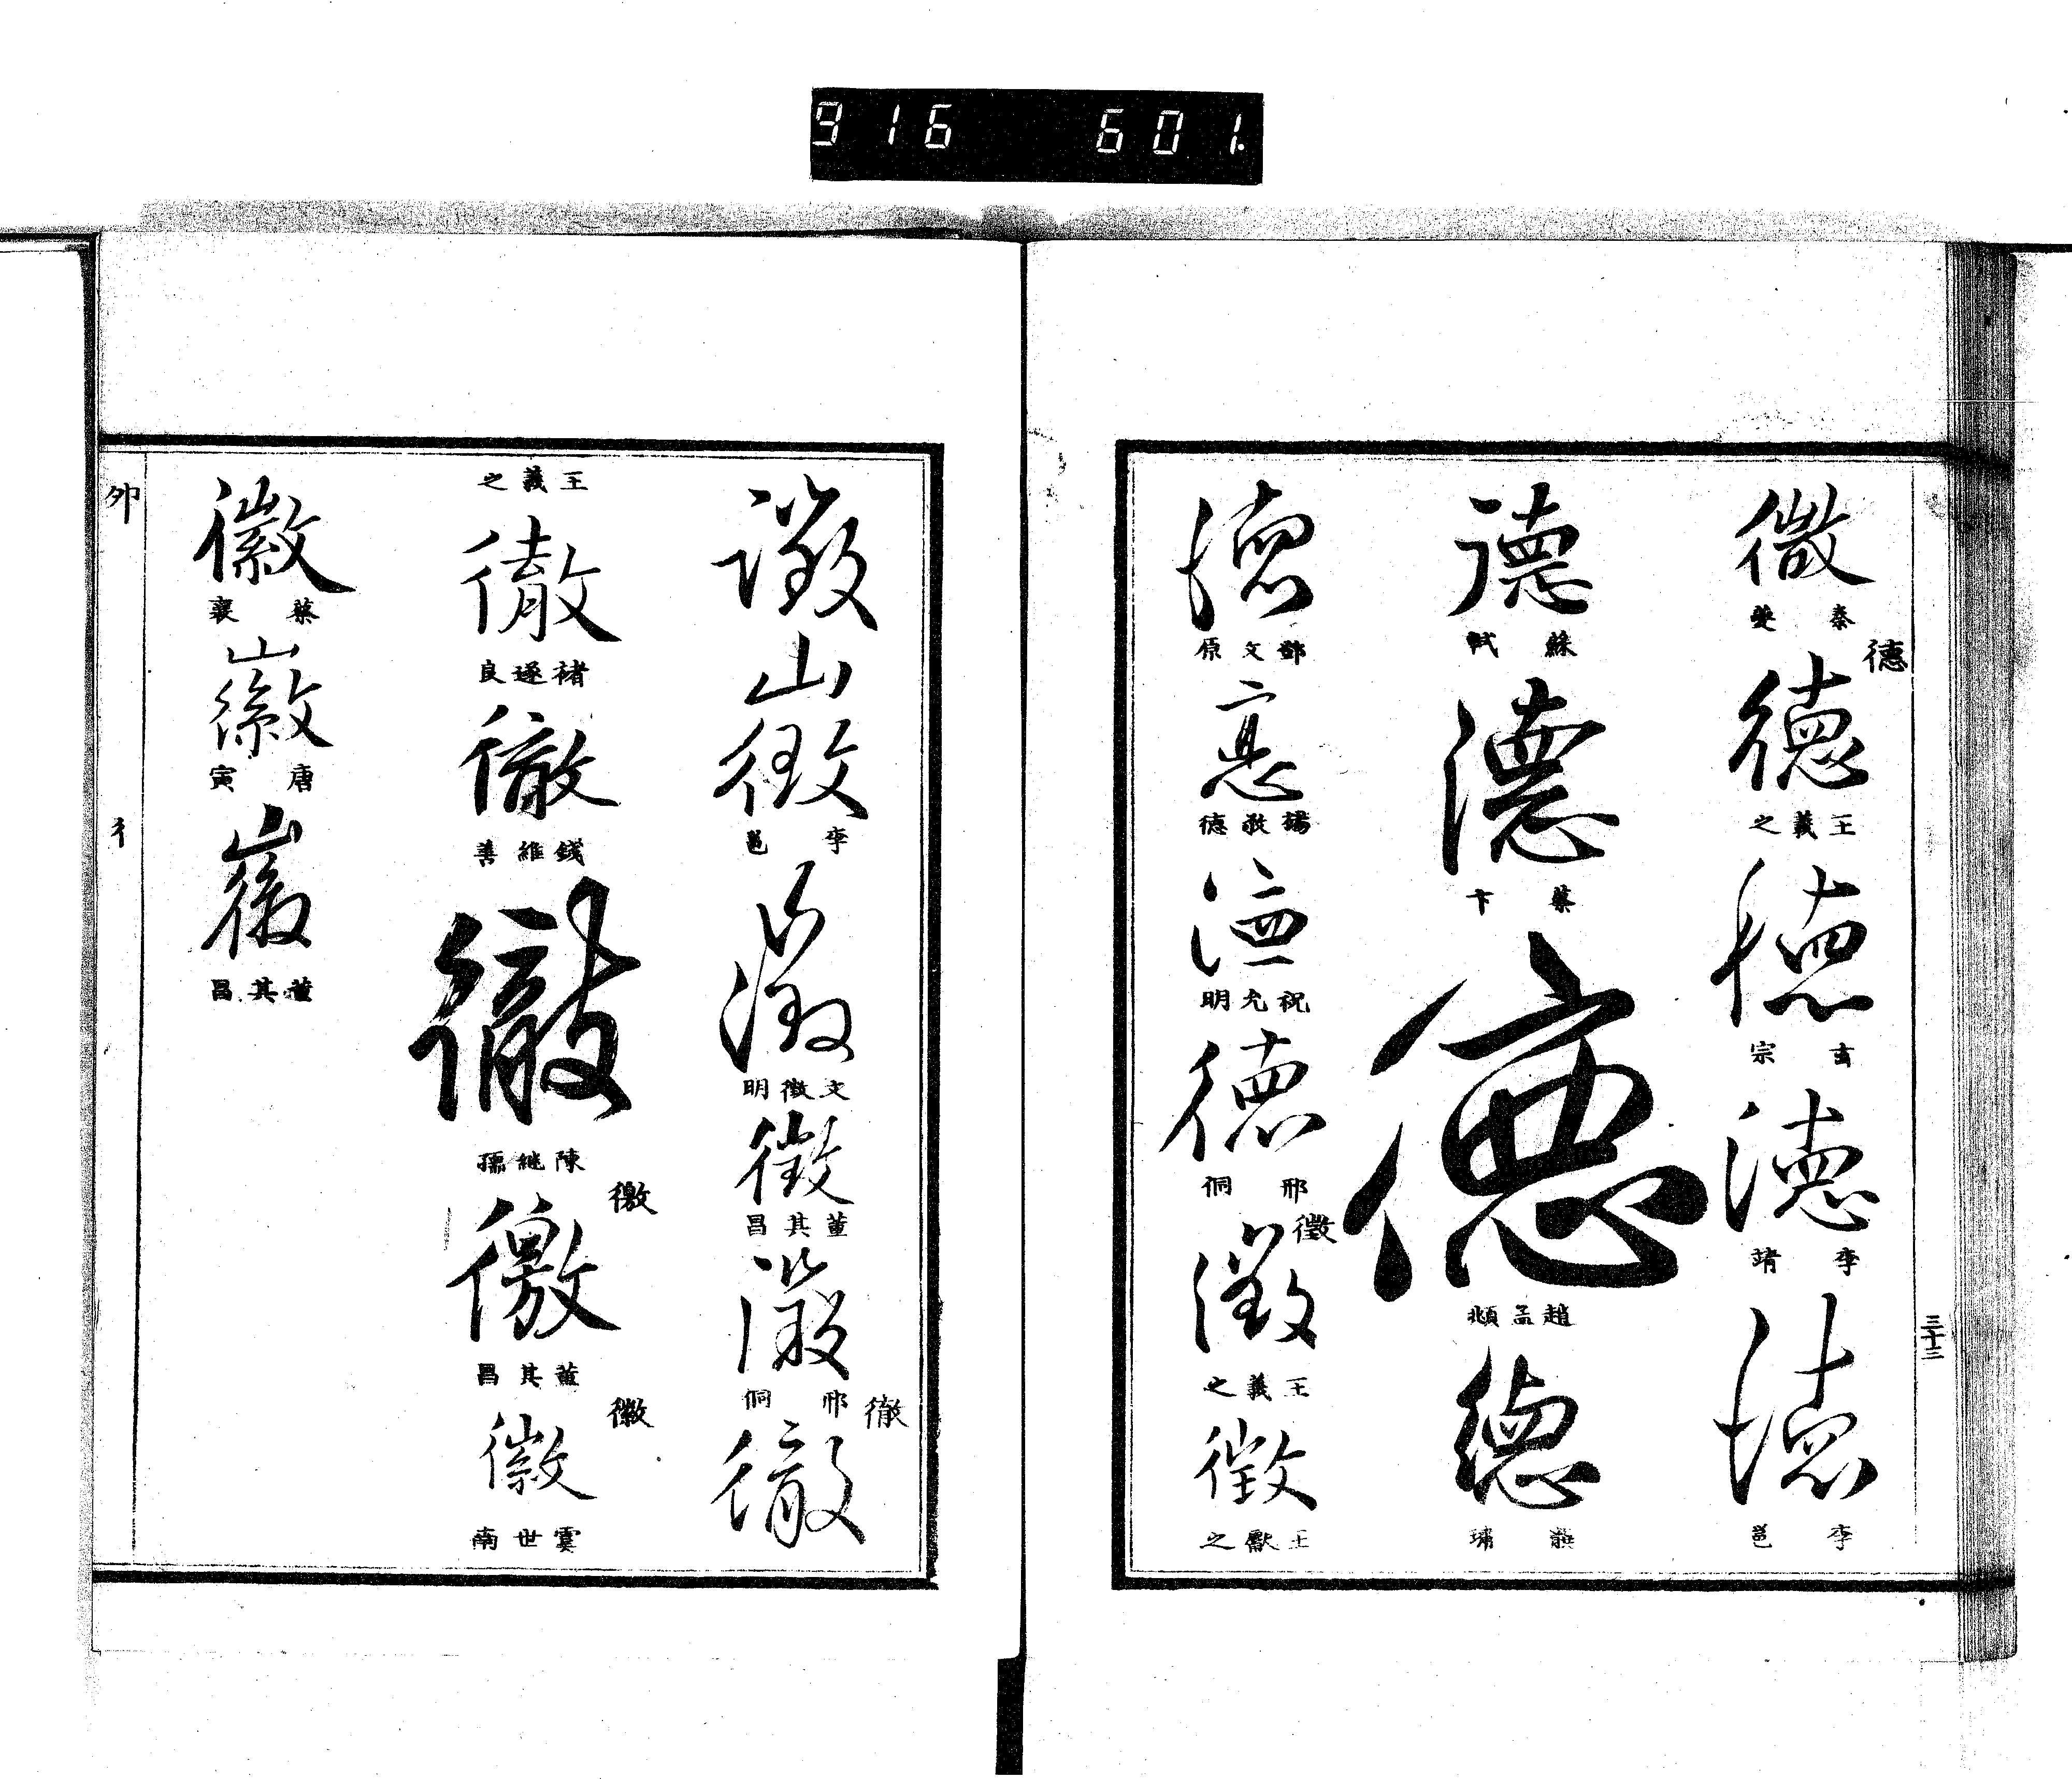 916 601.
三十三
微
秦夔
德
德
王羲之
德
玄宗
德
李靖
德
李邕
德
蘇軾
德
蔡卞
德
趙孟頫
德
德
鄧文原
德
揚敬德
德
祝允明
德
邢侗
徵
徵
王羲之
徵
王獻之
徵
徵
李邕
徵
文徵明
徵
董其昌
徵
邢侗
徹
徹
王羲之
徹
褚遂良
徹
錢維善
徹
陳繼孺
徼
徼
董其昌
徽
徽
虞世南
徽
蔡襄
徽
唐寅
徽
董其昌
卯
彳